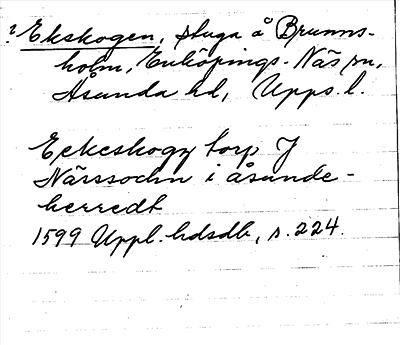 ? Ekskogen, stuga å Brunns-
holm, Enköpings-Näs sn,
Åsunda hd, Upps. l.
Eckeskogz torp J
Närssochn i åsunde-
herredt
1599 Uppl. hdsdb, s. 224.